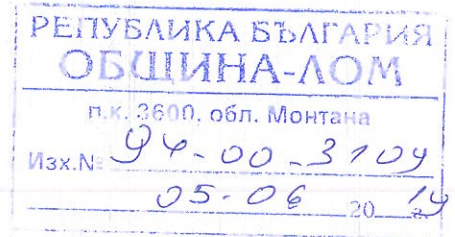 РЕПУБЛИКА БЪЛГАРИЯ
ОБЩИНА-ЛОМ
п.к. 3600, обл. Монтана
Изх.№ 94-00-3109
05-06 2019